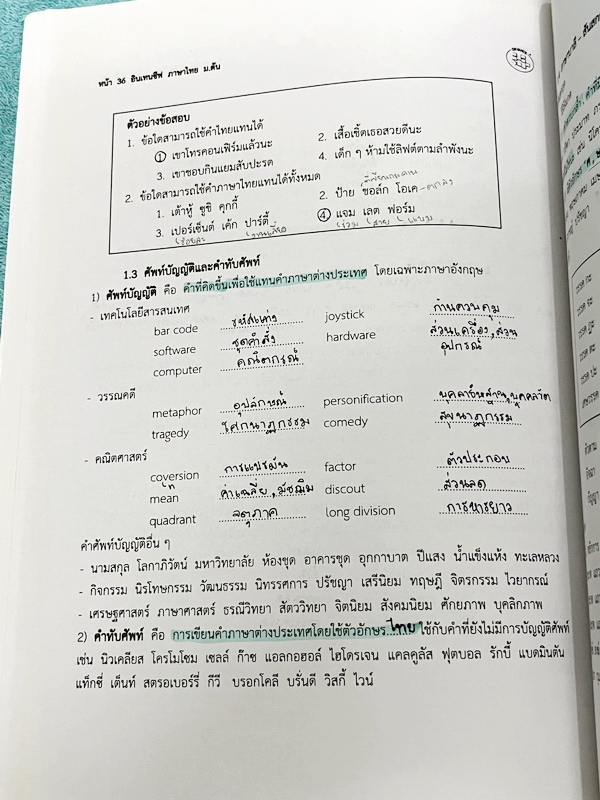 หน้า 36 อินเทนซีฟ ภาษาไทย ม.ต้น
ตัวอย่างข้อสอบ
1. ข้อใดสามารถใช้คำไทยแทนได้
1 เขาโทรคอนเฟิร์มแล้วนะ 2. เสื้อเชิ้ตเธอสวยดีนะ
3. เขาชอบกินแยมสับปะรด 4. เด็ก ๆ ห้ามใช้ลิฟต์ตามลำพังนะ
2. ข้อใดสามารถใช้คำภาษาไทยแทนได้ทั้งหมด
1. เต้าหู้ ซูชิ คุกกี้ 2. ป้าย ชอล์ก โอเค - ตกลง
3. เปอร์เซ็นต์ เค้ก ปาร์ตี้ 4 แจม เลต ฟอร์ม
ร้อยละ งานเลี้ยง ร่วม สาย
1.3 ศัพท์บัญญัติและคำทับศัพท์
1) ศัพท์บัญญัติ คือ คำที่คิดขึ้นเพื่อใช้แทนคำภาษาต่างประเทศ โดยเฉพาะภาษาอังกฤษ
- เทคโนโลยีสารสนเทศ
bar code รหัสแท่ง joystick ก้านควบคุม
software ชุดคำสั่ง hardware ส่วนเครื่อง, ส่วน
อุปกรณ์
computer คณิตกรณ์
- วรรณคดี
metaphor อุปลักษณ์ personification บุคลาธิษฐาน, บุคคลวัต
tragedy โศกนาฏกรรม comedy สุขนาฏกรรม
- คณิตศาสตร์
coversion การแปรผัน factor ตัวประกอบ
mean ค่าเฉลี่ย, มัชฌิม discout ส่วนลด
quadrant จตุภาค long division การหารยาว
คำศัพท์บัญญัติอื่น ๆ
- นามสกุล โลกาภิวัตน์ มหาวิทยาลัย ห้องชุด อาคารชุด อุกกาบาต ปีแสง น้ำแข็งแห้ง ทะเลหลวง
- กิจกรรม นิรโทษกรรม วัฒนธรรม นิทรรศการ ปรัชญา เสรีนิยม ทฤษฎี จิตรกรรม ไวยากรณ์
- เศรษฐศาสตร์ ภาษาศาสตร์ ธรณีวิทยา สัตววิทยา จิตนิยม สังคมนิยม ศักยภาพ บุคลิกภาพ
2) คำทับศัพท์ คือ การเขียนคำภาษาต่างประเทศโดยใช้ตัวอักษร ไทย ใช้กับคำที่ยังไม่มีการบัญญัติศัพท์
เช่น นิวเคลียส โครโมโซม เซลล์ ก๊าซ แอลกอฮอล์ ไฮโดรเจน แคลคูลัส ฟุตบอล รักบี้ แบดมินตัน
แท็กซี่ เต็นท์ สตรอเบอร์รี่ กีวี บรอกโคลี บรั่นดี วิสกี้ ไวน์